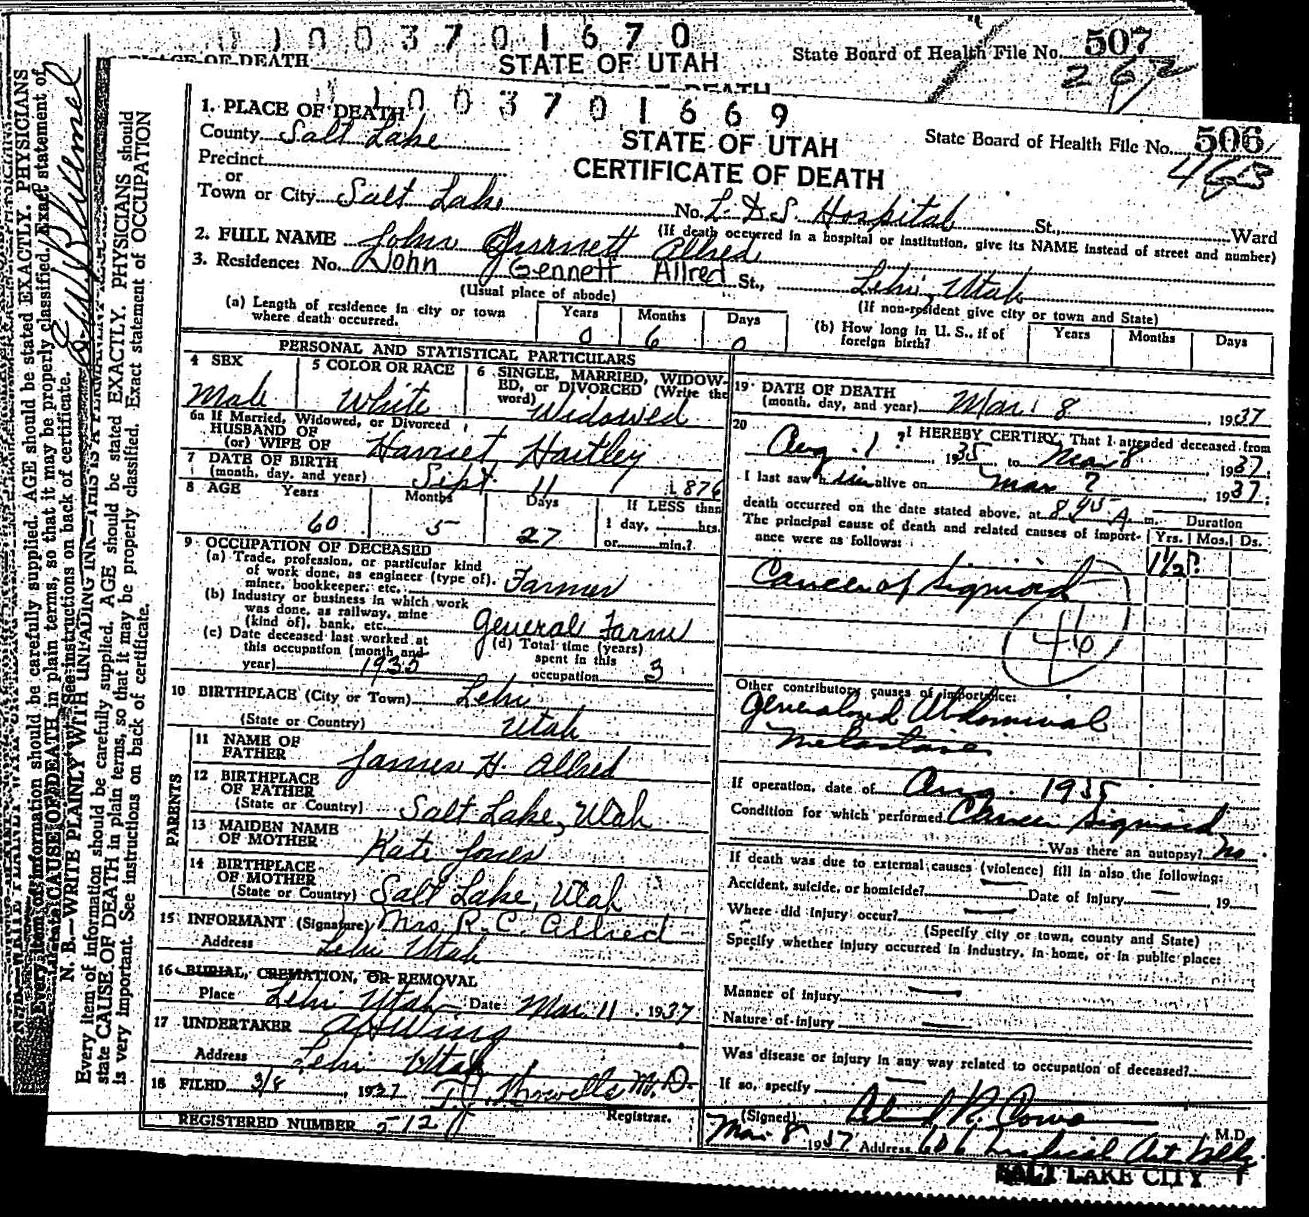 1 0 0 3 7 0 1 6 7 0
State Board of Health File No. 507
267
PLACE OF DEATH
STATE OF UTAH
1 0 0 3 7 0 1 6 6 9
State Board of Health File No. 506
465
STATE OF UTAH
CERTIFICATE OF DEATH
1. PLACE OF DEATH
County Salt Lake
Precinct
or
Town or City Salt Lake No. L.D.S. Hospital St., Ward
(If death occurred in a hospital or institution, give its NAME instead of street and number)
2. FULL NAME John Allred
3. Residence: No. John Gennett Allred St., Lehi, Utah
(Usual place of abode) (If non-resident give city or town and State)
(a) Length of residence in city or town where death occurred. Years 0 Months 6 Days 0
(b) How long in U. S., if of foreign birth? Years Months Days
PERSONAL AND STATISTICAL PARTICULARS
4 SEX Male
5 COLOR OR RACE White
6 SINGLE, MARRIED, WIDOWED, or DIVORCED (Write the word) Widowed
6a If Married, Widowed, or Divorced
HUSBAND OF
(or) WIFE OF Harriet Hartley
7 DATE OF BIRTH
(month, day, and year) Sept 11 1876
8 AGE Years 60 Months 5 Days 27 If LESS than 1 day, hrs. or min.?
9 OCCUPATION OF DECEASED
(a) Trade, profession, or particular kind of work done, as engineer (type of), miner, bookkeeper, etc. Farmer
(b) Industry or business in which work was done, as railway, mine (kind of), bank, etc. General Farm
(c) Date deceased last worked at this occupation (month and year) 1935
(d) Total time (years) spent in this occupation 3
10 BIRTHPLACE (City or Town) Lehi
(State or Country) Utah
PARENTS
11 NAME OF FATHER James H. Allred
12 BIRTHPLACE OF FATHER
(State or Country) Salt Lake, Utah
13 MAIDEN NAME OF MOTHER Kate Jones
14 BIRTHPLACE OF MOTHER
(State or Country) Salt Lake, Utah
15 INFORMANT (Signature) Mrs. R. C. Allred
Address Lehi Utah
16 BURIAL, CREMATION, OR REMOVAL
Place Lehi Utah Date Mar. 11, 1937
17 UNDERTAKER A H Wing
Address Lehi Utah
18 FILED 3/8, 1937 M.D.
Registrar.
REGISTERED NUMBER 512
19 DATE OF DEATH
(month, day, and year) Mar. 8, 1937
20 I HEREBY CERTIFY, That I attended deceased from
Aug. 1, 1935 to Mar 8 1937;
I last saw him alive on Mar 7 1937;
death occurred on the date stated above, at 8 45 A. m.
The principal cause of death and related causes of importance were as follows:
Duration
Yrs. Mos. Ds.
1 1/2
Cancer of Sigmoid
46
Other contributory causes of importance:
Generalized Abdominal
Metastasis
If operation, date of Aug. 1935
Condition for which performed Cancer Sigmoid
Was there an autopsy? No
If death was due to external causes (violence) fill in also the following:
Accident, suicide, or homicide? Date of Injury 19
Where did injury occur?
(Specify city or town, county and State)
Specify whether injury occurred in industry, in home, or in public place:
Manner of injury
Nature of injury
Was disease or injury in any way related to occupation of deceased?
If so, specify
(Signed) M.D.
Mar 8 1937 Address 606 Medical Art Bldg.
SALT LAKE CITY
N. B.—WRITE PLAINLY WITH UNFADING INK—THIS IS A PERMANENT
Every item of information should be carefully supplied. AGE should be stated EXACTLY. PHYSICIANS should
state CAUSE OF DEATH in plain terms, so that it may be properly classified. Exact statement of OCCUPATION
is very important. See instructions on back of certificate.